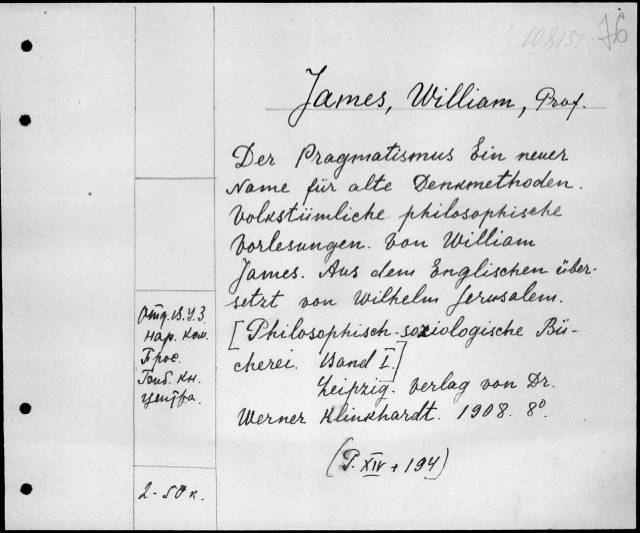 76
James, William, Prof.
Der Pragmatismus Ein neuer
Name für alte Denkmethoden.
Volkstümliche philosophische
Vorlesungen. Von William
James. Aus dem Englischen über-
setzt von Wilhelm Jerusalem.
[Philosophisch-soziologische Bü-
cherei. Band I.]
Leipzig. Verlag von Dr.
Werner Klinkhardt. 1908. 8°
(P. XIV + 194)
Отд. В.У.З
Нар. Ком.
Прос.
Гив. Кн.
центра.
2-50 к.